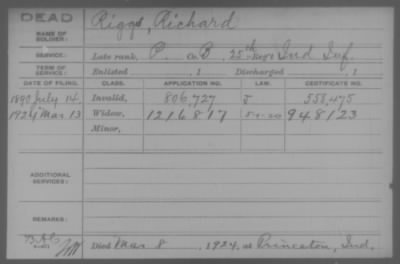 DEAD
NAME OF SOLDIER: Riggs, Richard
SERVICE: Late rank, P. Co. B, 25th Reg't Ind Inf.
TERM OF SERVICE: Enlisted , 1 Discharged , 1
DATE OF FILING. CLASS. APPLICATION NO. LAW. CERTIFICATE NO.
1890 July 14. Invalid, 806,727 J 558,475
1924 Mar 13 Widow, 1216817 5-1-20 948123
Minor,
ADDITIONAL SERVICES:
REMARKS:
Died Mar 8, 1924, at Princeton, Ind.